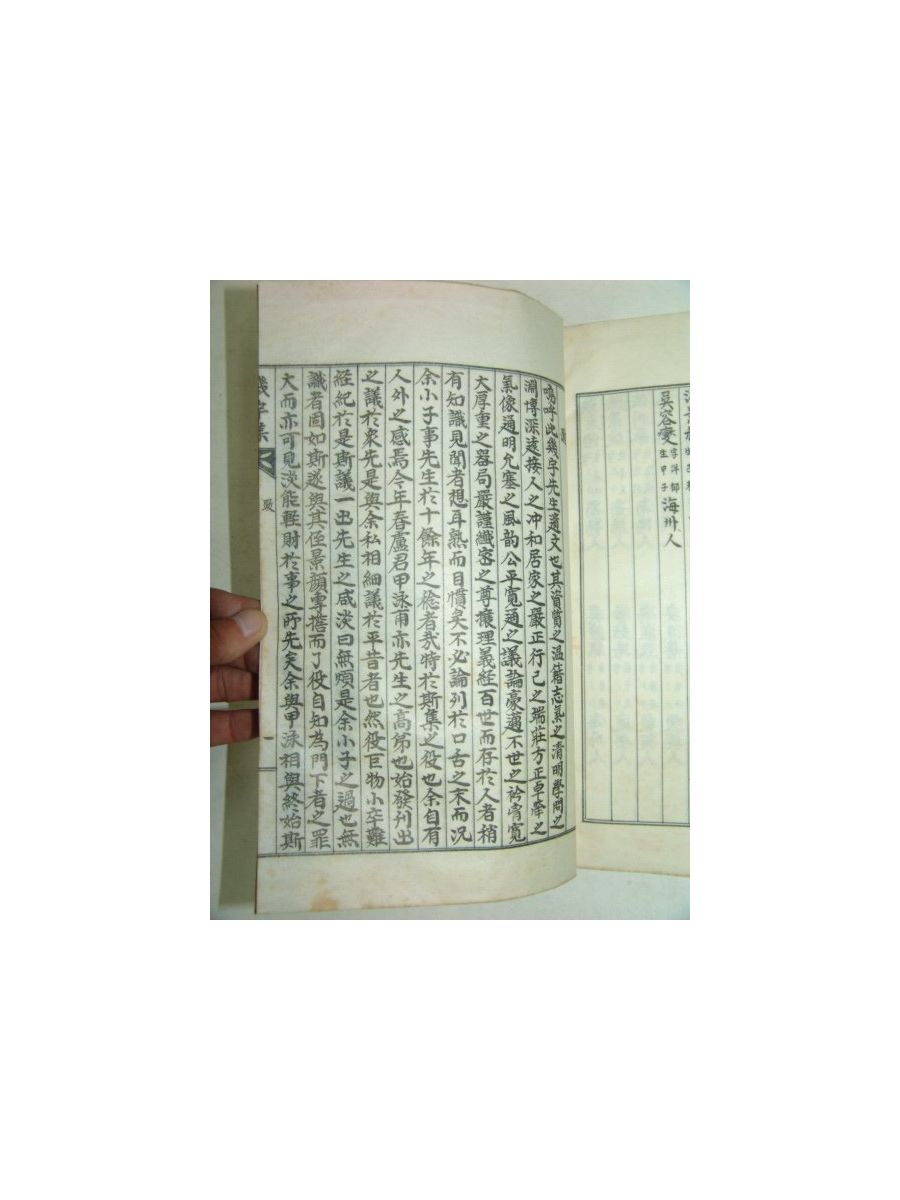 吳容燮 字萍郁 生甲子 海州人
嗚呼此幾宇先生遺文也其資質之溫籍志氣之清明學問之
淵博深遠接人之冲和居家之嚴正行己之端莊方正卓犖之
氣像通明允塞之風韵公平寬通之議論豪邁不世之衿霄寬
大厚重之器局嚴謹纖密之尊攘理義經百世而存於人者稍
有知識見聞者想耳熟而目慣矣不必論列於口舌之末而况
余小子事先生於十餘年之稔者㢤特於斯集之役也余自有
人外之感焉今年春盧君甲泳甫亦先生之高弟也始發刊出
之議於衆先是與余私相細議於平昔者也然役巨物小卒難
經紀於是斯議一出先生之咸淡曰無煩是余小子之過也無
識者固如斯遂與其侄景顔專擔而了役自知為門下者之罪
大而亦可見淡能輕財於事之所先矣余與甲泳相與終始斯
幾宇集
跋